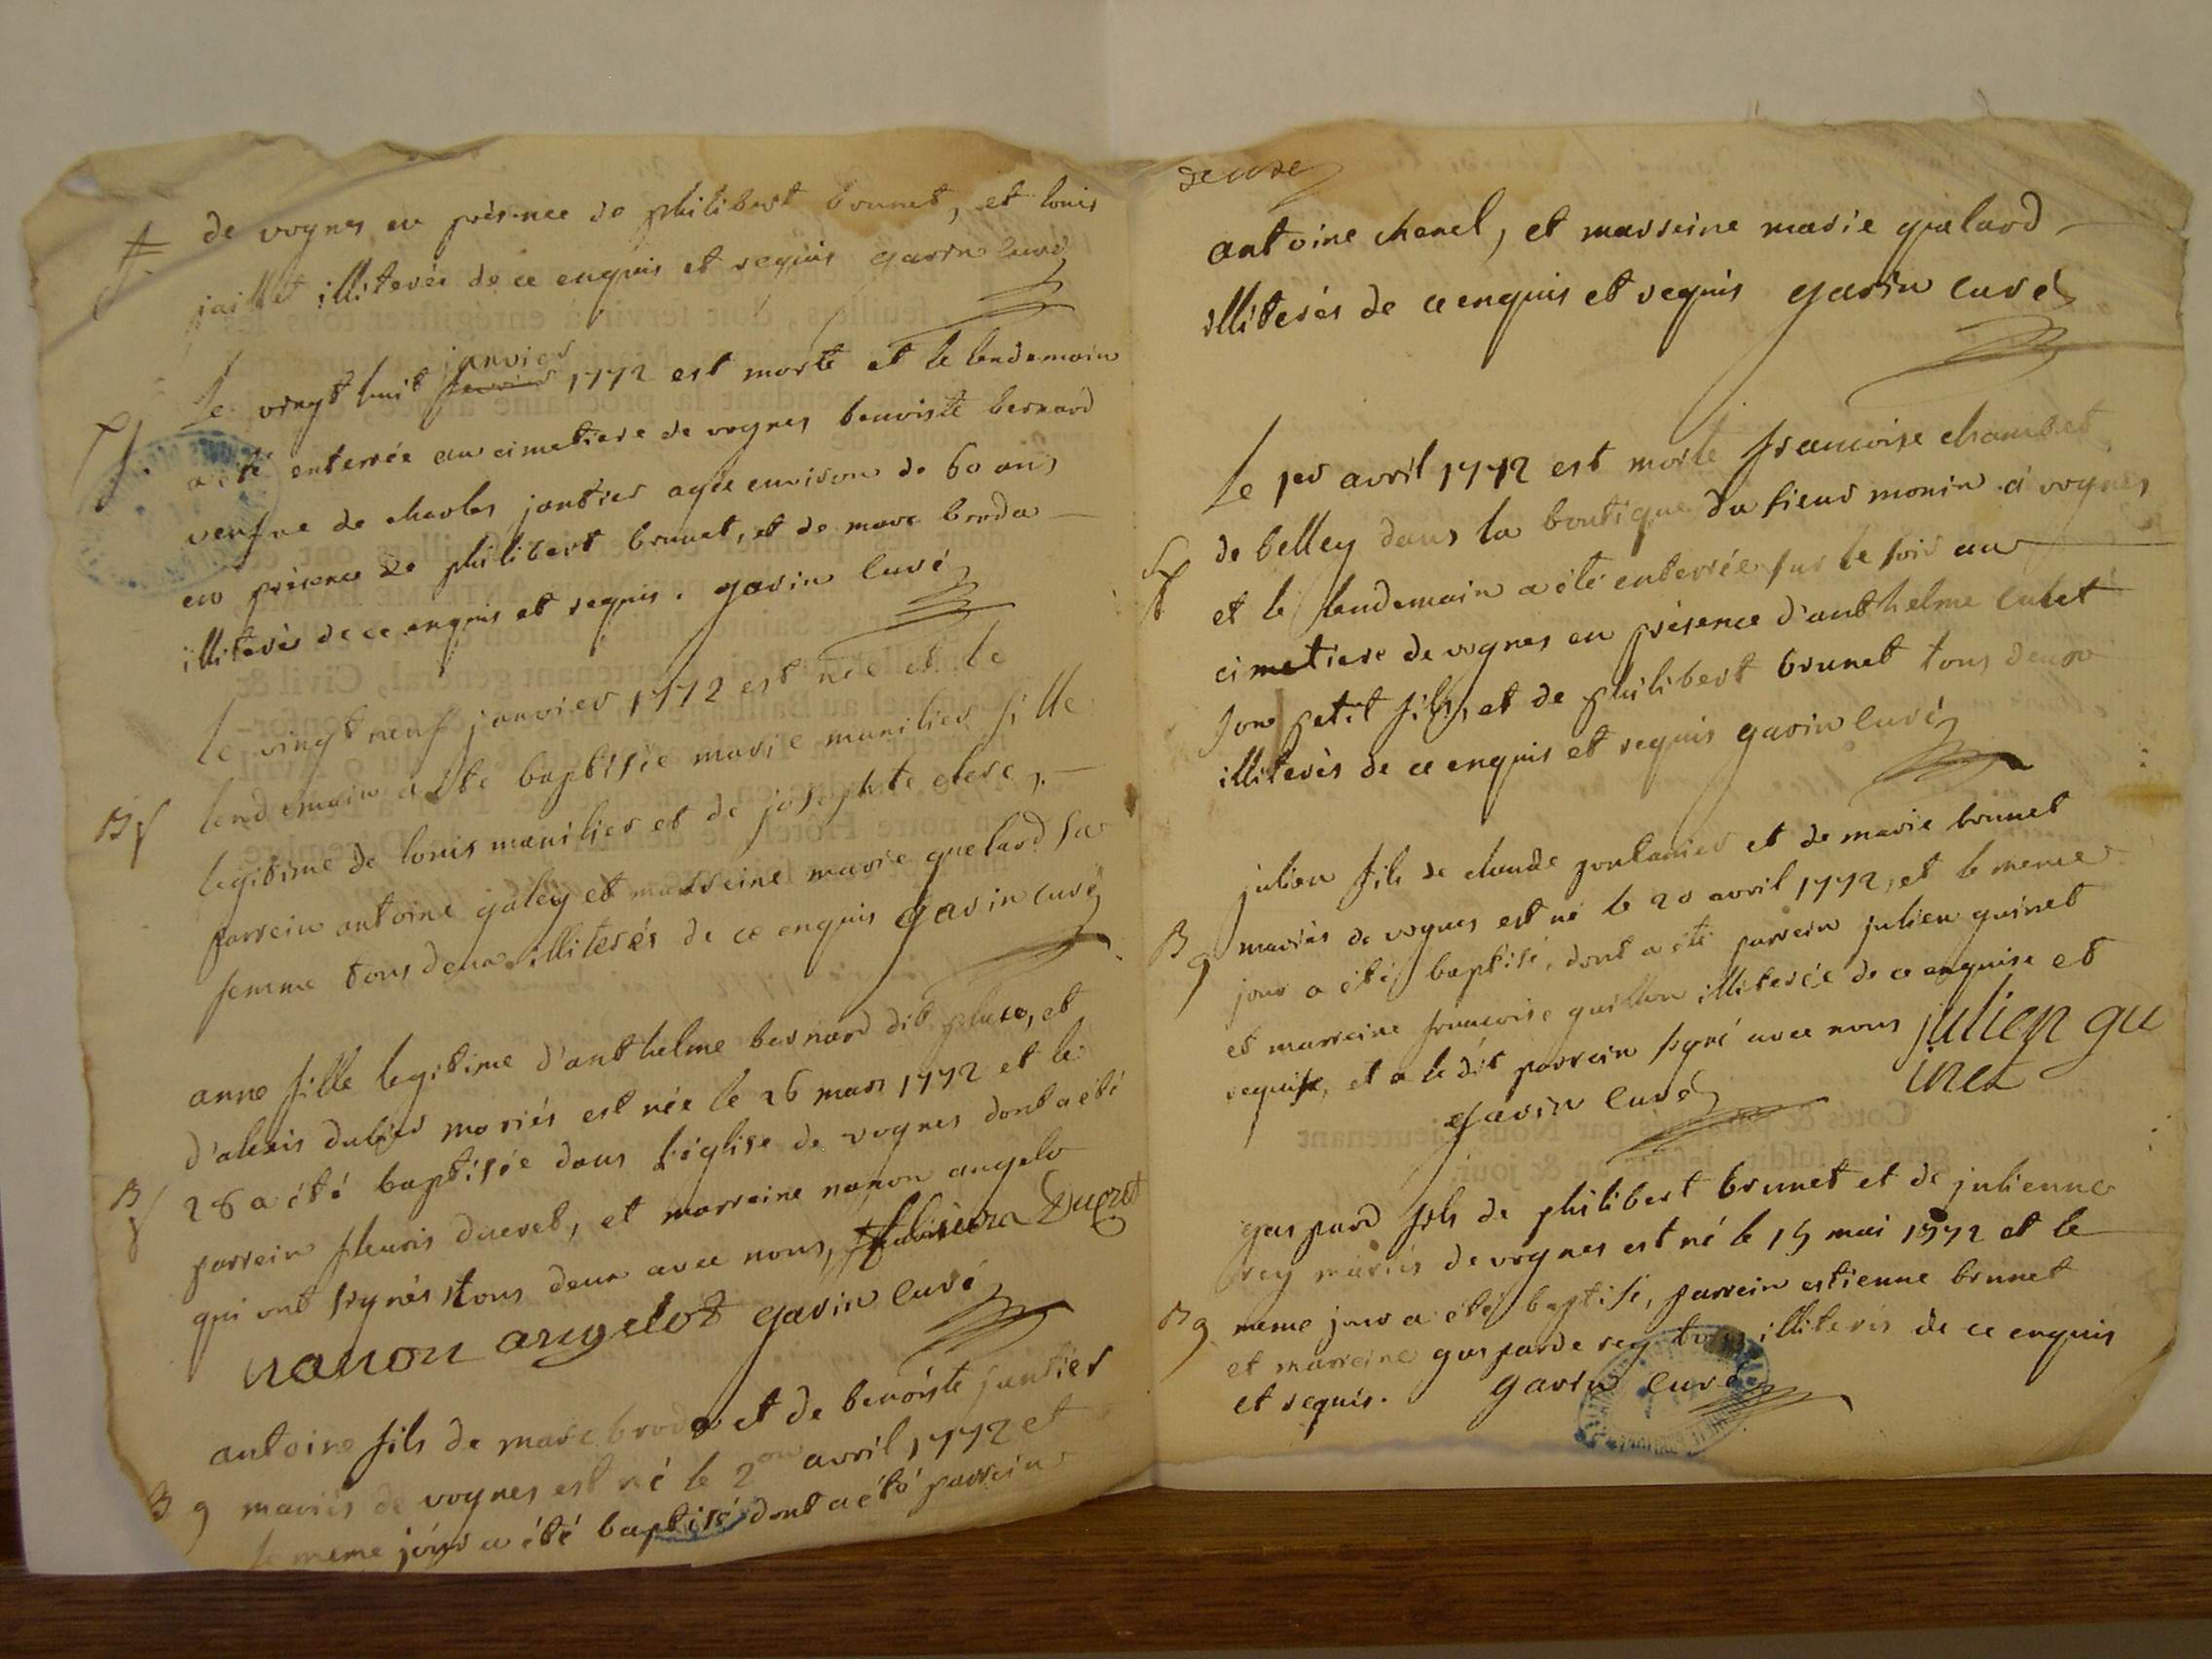 de vognes en présence de philibert brunet, et louis
jaillet illiterés de ce enquis et requis garin curé
janvier
Le vingt huit 1772 est morte et le lendemain
a été enterrée au cimetiere de vognes benoiste bernard
veufve de charles jantier agée environ de 60 ans
en présence de philibert brunet, et de marc broda
illiterés de ce enquis et requis. garin curé
le vingt neuf janvier 1772 est née et le
lendemain a été baptisée marie manilier fille
legitime de louis manilier et de josephte clerc,
parrein antoine galey et marreine marie quelard sa
femme tous deux illiterés de ce enquis garin curé
B f
anne fille legitime d'anthelme bernard dit , et
d'alexis dubier mariés est née le 26 mars 1772 et le
28 a été baptisée dans l'église de vognes dont a été
parrein fleuris ducret, et marreine nanon angelo
qui ont signés tous deux avec nous, Ducret
nanon angelot garin curé
B f
antoine fils de marc broda et de benoiste jantier
mariés de vognes est né le 2 avril 1772 et
le meme jour a été baptisé dont a été parrein
B g
antoine chenel, et marreine marie quelard
illiterés de ce enquis et requis garin curé
Le 1er avril 1772 est morte francoise chambet
de belley dans la boutique du sieur monin à vognes
et le lendemain a été enterrée sur le soir au
cimetiere de vognes en présence d'anthelme cullet
son petit fils, et de philibert brunet tous deux
illiterés de ce enquis et requis garin curé
julien fils de claude et de marie brunet
mariés de vognes est né le 20 avril 1772, et le meme
jour a été baptisé, dont a été parrein julien guinet
et marreine francoise guillon illiterée de ce enquise et
requise, et a le dit parrein signé avec nous julien gu
inet
garin curé
B g
gaspard fils de philibert brunet et de julienne
rey mariés de vognes est né le 15 mai 1772 et le
meme jour a été baptisé, parrein estienne brunet
et marreine gasparde rey tous illiterés de ce enquis
et requis. garin curé
B g